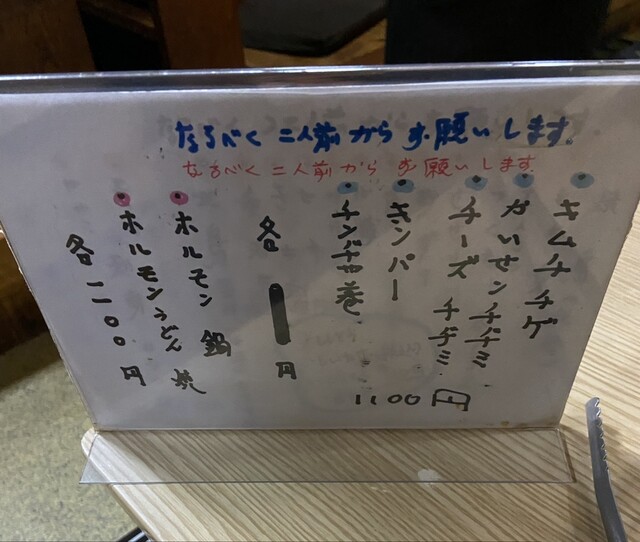 なるべく二人前からお願いします。
なるべく二人前からお願いします
キムチチゲ
かいせんチヂミ
チーズチヂミ
キンパー
チンヂャ巻
1100円
各 円
ホルモン鍋
ホルモンうどん焼
各二〇〇円